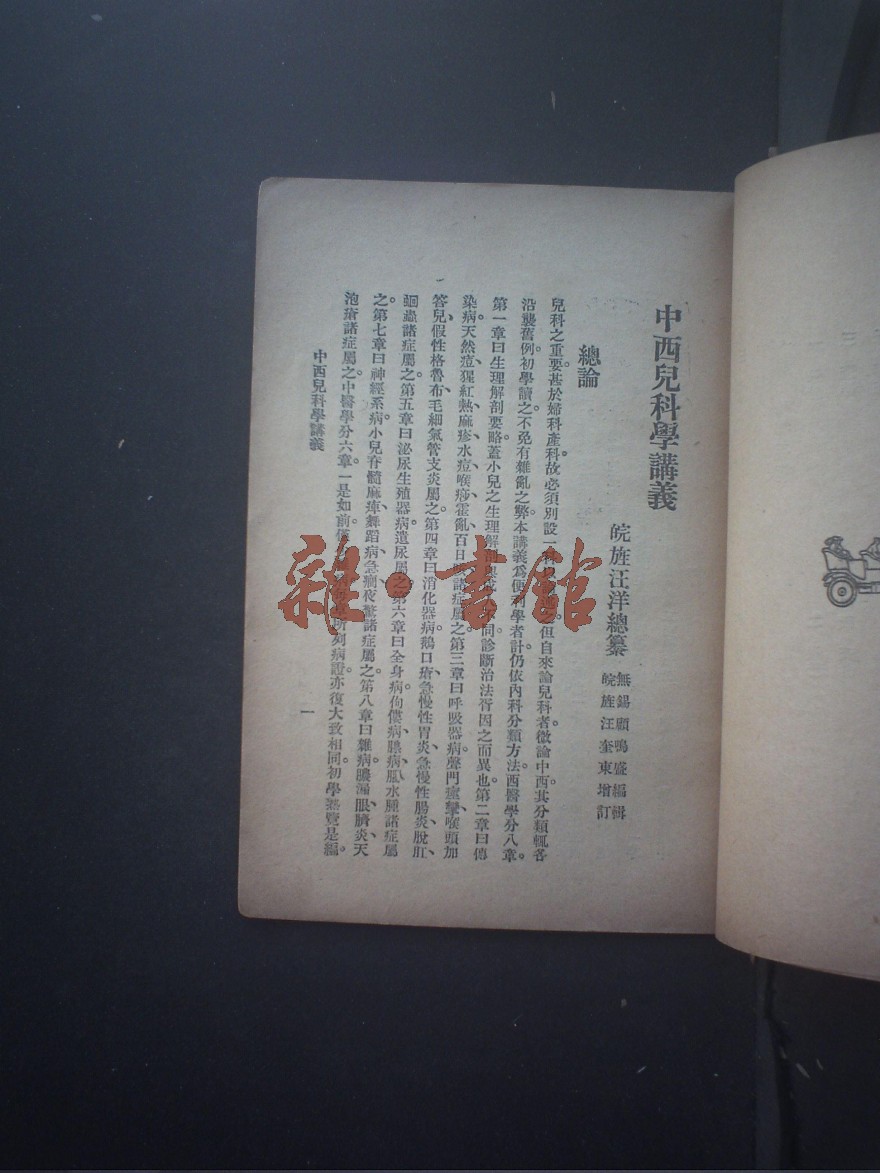 中西兒科學講義
皖旌汪洋總纂
無錫顧鳴盛編輯
皖旌汪奎東增訂
總論
兒科之重要。甚於婦科產科。故必須別設一科但自來論兒科者。微論中西。其分類輒各
沿襲舊例。初學讀之。不免有雜亂之弊。本講義爲便利學者計。仍依內科分類方法。西醫學分八章。
第一章曰生理解剖要略。蓋小兒之生理解剖同。診斷治法。胥因之而異也。第二章曰傳
染病。天然痘、猩紅熱、麻疹、水痘、喉痧、霍亂、百日諸症屬之。第三章曰呼吸器病。聲門痙攣、喉頭加
答兒、假性格魯布、毛細氣管支炎屬之。第四章曰消化器病。鵝口瘡、急慢性胃炎、急慢性腸炎、脫肛、
蛔蟲諸症屬之。第五章曰泌尿生殖器病。遺尿屬之。第六章曰全身病。佝僂病、腺病、風水腫諸症屬
之。第七章曰神經系病。小兒脊髓麻痺、舞蹈病、急癇、夜驚諸症屬之。第八章曰雜病。膿漏眼、臍炎、天
泡瘡諸症屬之。中醫學分六章。一是如前所列病證。亦復大致相同。初學覽是編。
中西兒科學講義
一
雜·書館